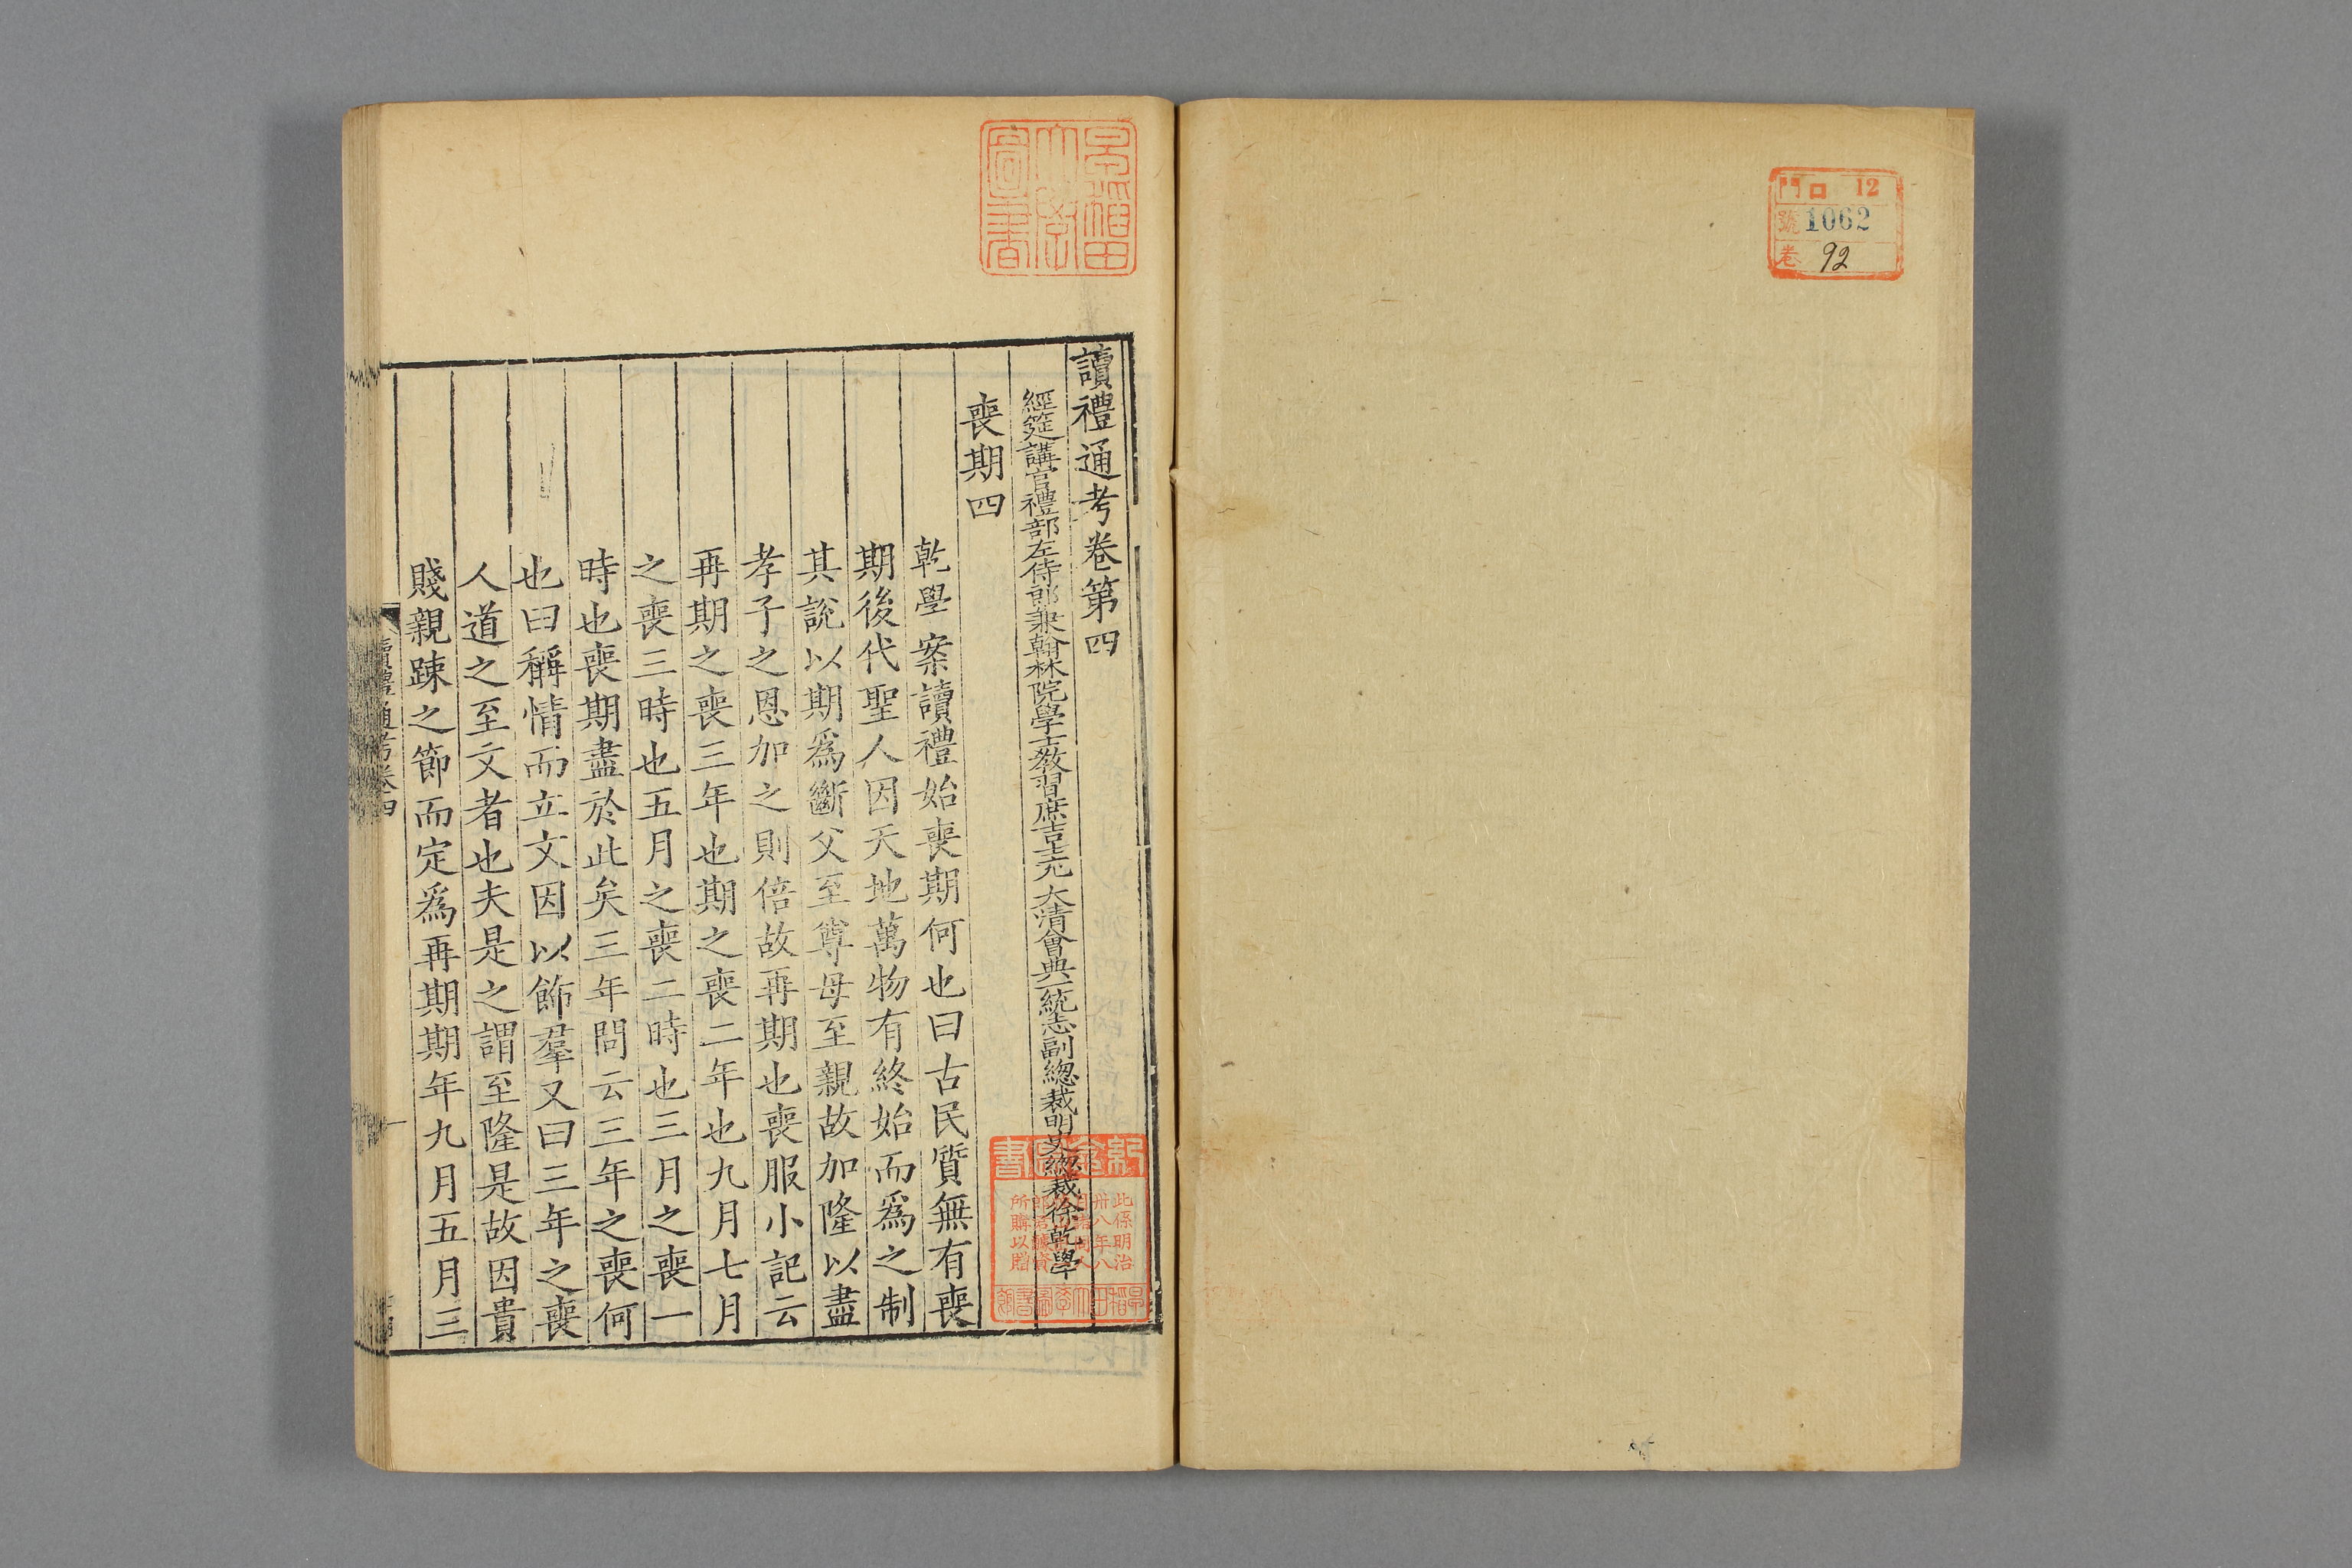 門 口 12
號 1062
卷 92
早稲田大學圖書
讀禮通考卷第四
經筵講官禮部左侍郎兼翰林院學士敎習庶吉士充 大清會典一統志副總裁明史總裁徐乾學
喪期四
乾學案讀禮始喪期何也曰古民質無有喪
期後代聖人因天地萬物有終始而爲之制
其說以期爲斷父至尊母至親故加隆以盡
孝子之恩加之則倍故再期也喪服小記云
再期之喪三年也期之喪二年也九月七月
之喪三時也五月之喪二時也三月之喪一
時也喪期盡於此矣三年問云三年之喪何
也曰稱情而立文因以飾羣又曰三年之喪
人道之至文者也夫是之謂至隆是故因貴
賤親踈之節而定爲再期期年九月五月三
讀禮通考卷四
一
此係明治
卅八年八
所購以贈